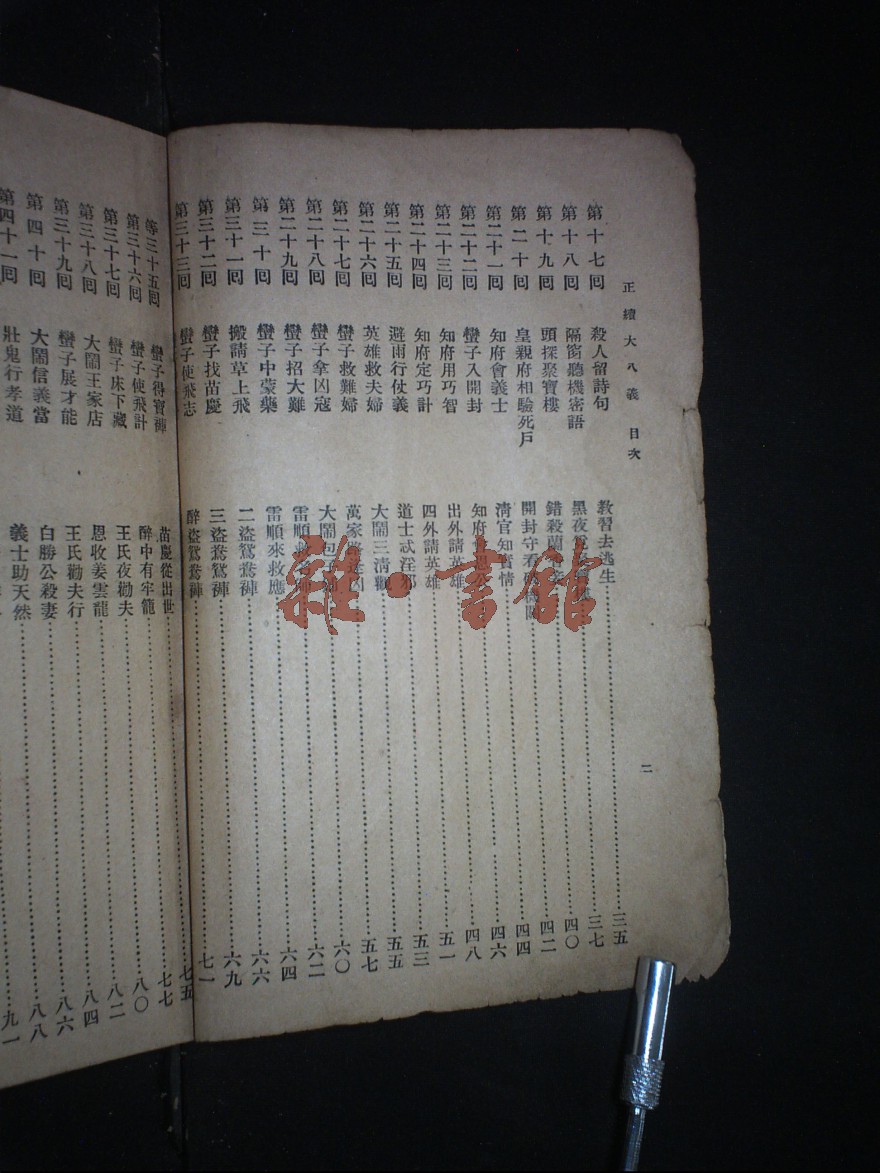 正續大八義 目次
二
第十七回 殺人留詩句 教習去逃生 三五
第十八回 隔窗聽機密語 黑夜 三七
第十九回 頭探聚寶樓 錯殺蘭 四〇
第二十回 皇親府相驗死戶 開封守看 四二
第二十一回 知府會義士 清官知實情 四四
第二十二回 蠻子入開封 知府 四六
第二十三回 知府用巧智 出外請英雄 四八
第二十四回 知府定巧計 四外請英雄 五一
第二十五回 避雨行仗義 道士忒淫邪 五三
第二十六回 英雄救夫婦 大鬧三清觀 五五
第二十七回 蠻子救難婦 萬家 五七
第二十八回 蠻子拿凶寇 大鬧包 六〇
第二十九回 蠻子招大難 雷順救 六二
第三十回 蠻子中蒙藥 雷順來救應 六四
第三十一回 搬請草上飛 二盜鴛鴦褲 六六
第三十二回 蠻子找苗慶 三盜鴛鴦褲 六九
第三十三回 蠻子使飛志 醉盜鴛鴦褲 七一
七五
等三十五回 蠻子得寶褲 苗慶從出世 七七
第三十六回 蠻子使飛計 醉中有牢籠 八〇
第三十七回 蠻子床下藏 王氏夜勸夫 八二
第三十八回 大鬧王家店 恩收姜雲龍 八四
第三十九回 蠻子展才能 王氏勸夫行 八六
第四十回 大鬧信義當 白勝公殺妻 八八
第四十一回 壯鬼行孝道 義士助天然 九一
雜·書館